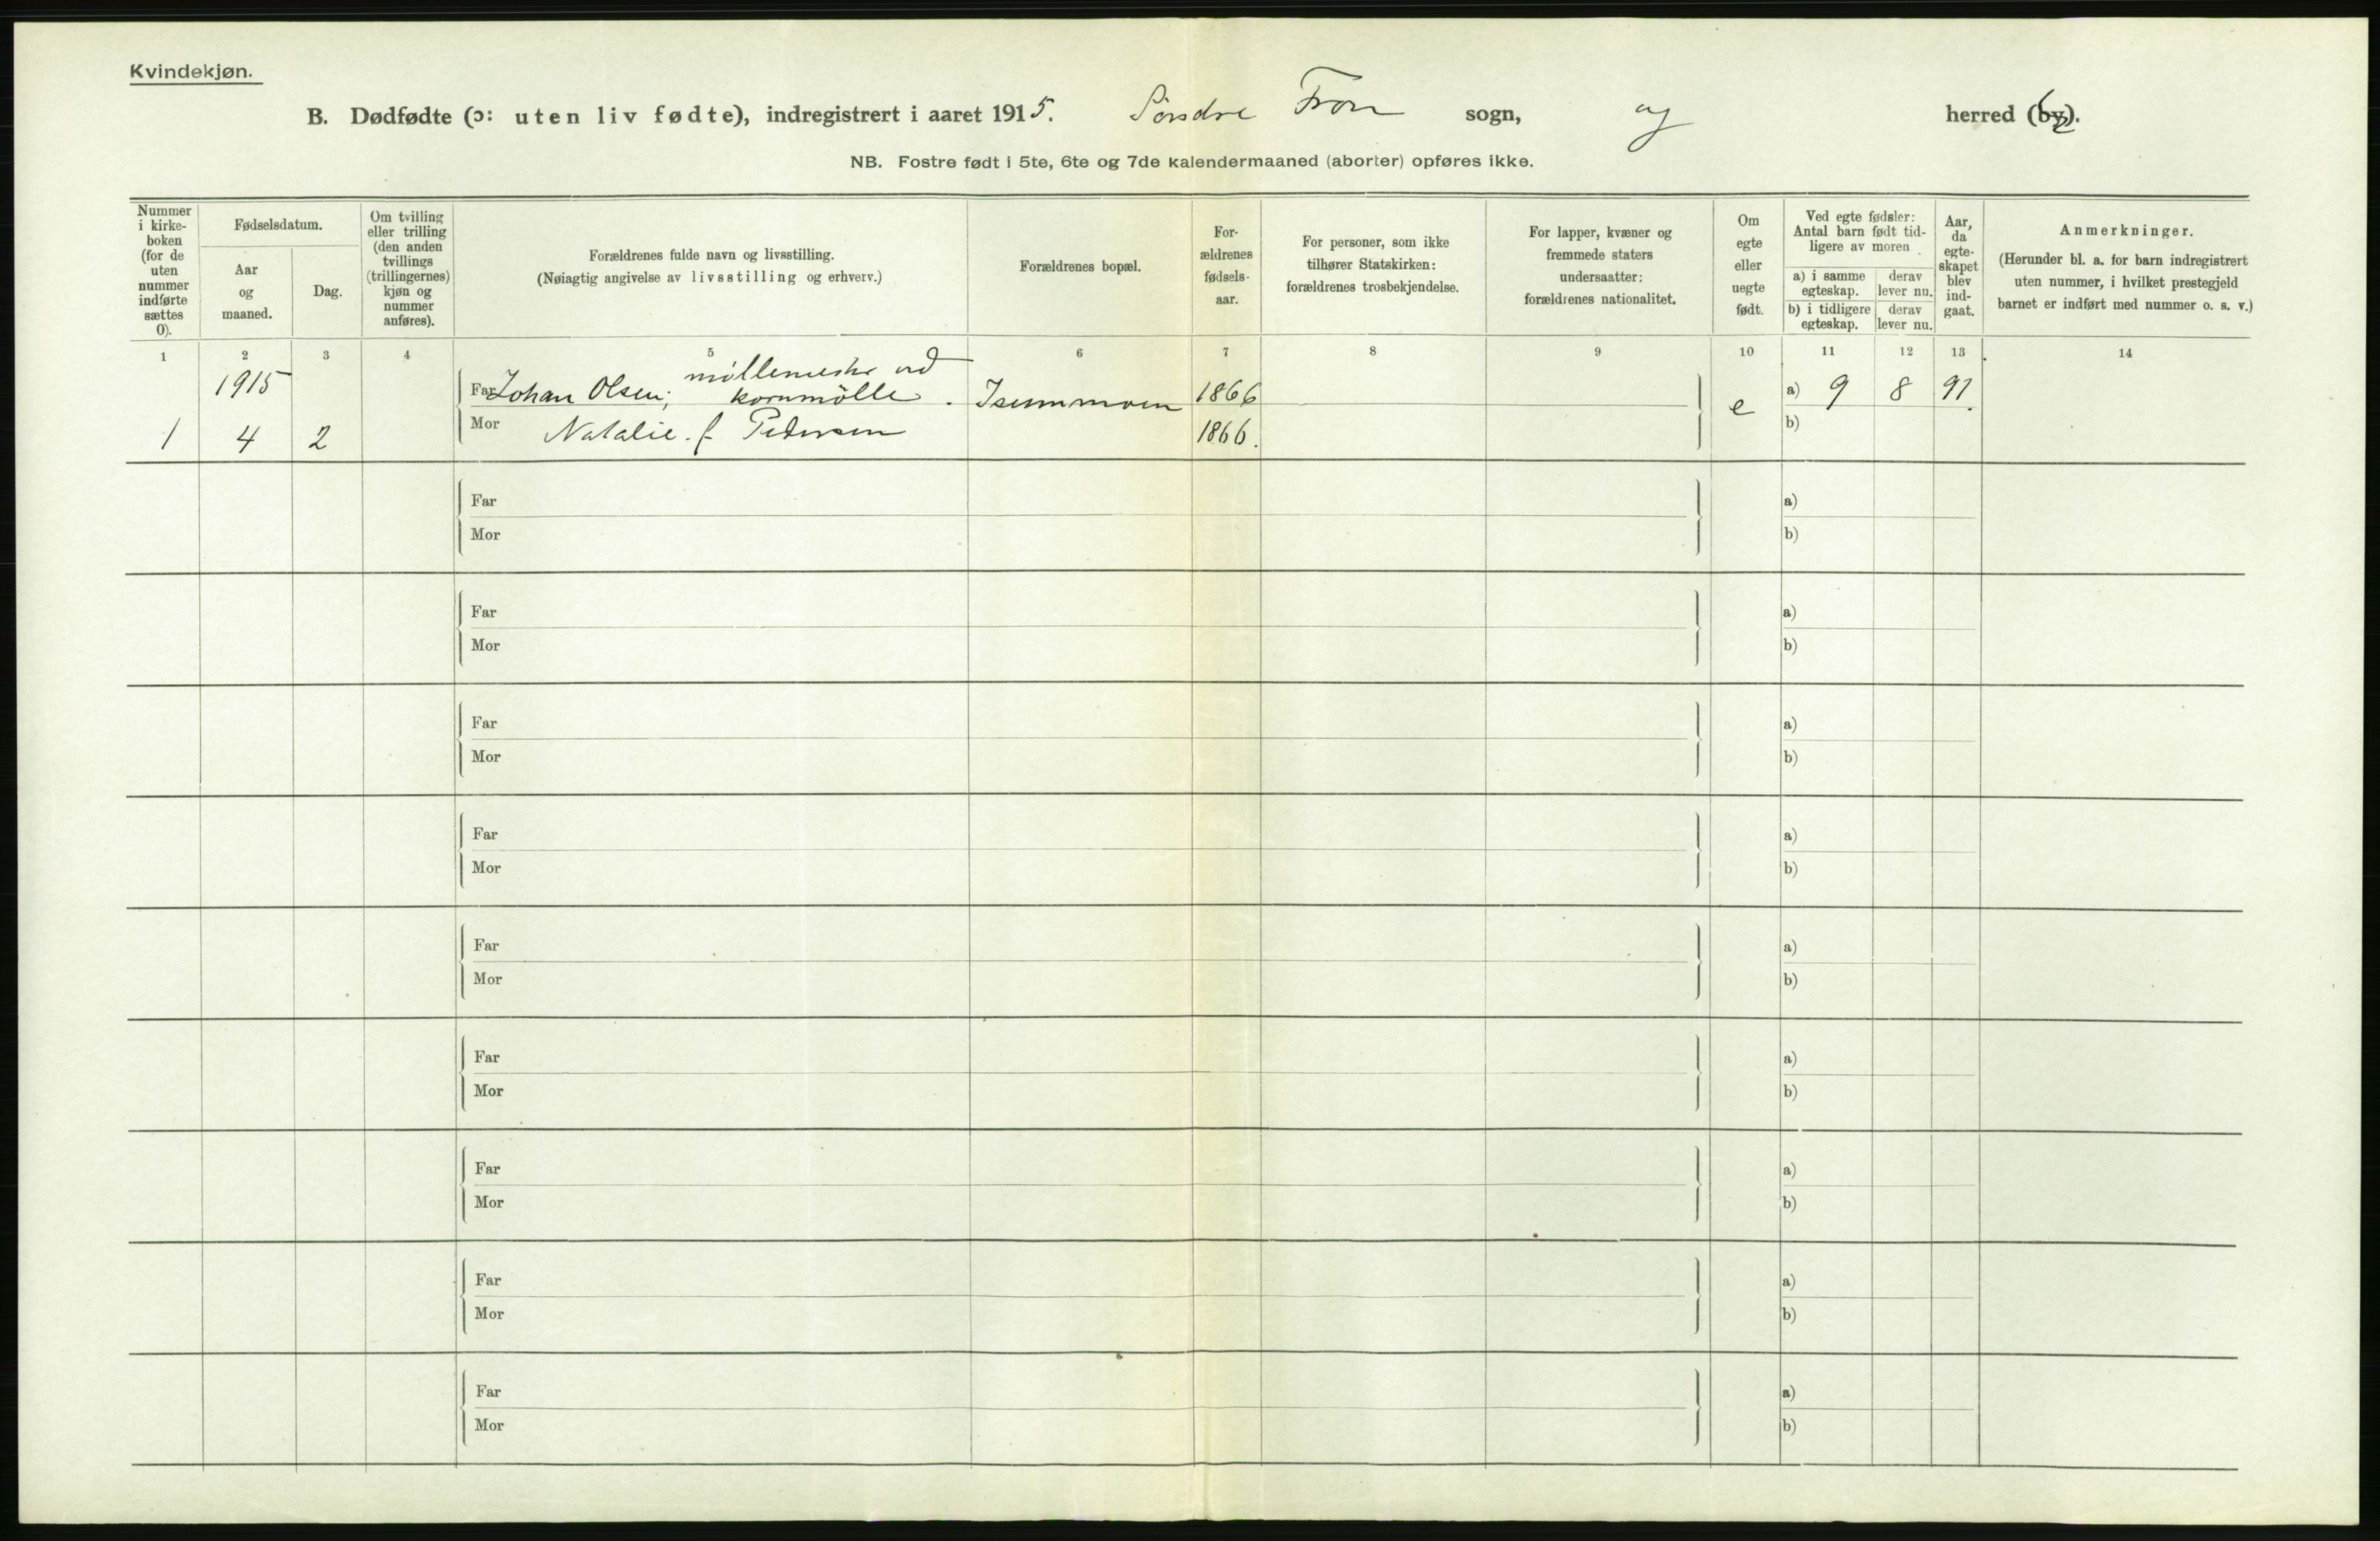 Kvindekjøn.
B. Dødfødte (ɔ: uten liv fødte), indregistrert i aaret 1915. Søndre Fron sogn, og herred (by).
NB. Fostre født i 5te, 6te og 7de kalendermaaned (aborter) opføres ikke.
Nummer
i kirke-
boken
(for de
uten
nummer
indførte
sættes
0).
Fødselsdatum.
Aar
og
maaned.
Dag.
Om tvilling
eller trilling
(den anden
tvillings
(trillingernes)
kjøn og
nummer
anføres).
Forældrenes fulde navn og livsstilling.
(Nøiagtig angivelse av livsstilling og erhverv.)
Forældrenes bopæl.
For-
ældrenes
fødsels-
aar.
For personer, som ikke
tilhører Statskirken:
forældrenes trosbekjendelse.
For lapper, kvæner og
fremmede staters
undersaatter:
forældrenes nationalitet.
Om
egte
eller
uegte
født.
Ved egte fødsler:
Antal barn født tid-
ligere av moren
a) i samme
egteskap.
derav
lever nu.
b) i tidligere
egteskap.
derav
lever nu.
Aar,
da
egte-
skapet
blev
ind-
gaat.
Anmerkninger.
(Herunder bl. a. for barn indregistrert
uten nummer, i hvilket prestegjeld
barnet er indført med nummer o. s. v.)
1 2 3 4 5 6 7 8 9 10 11 12 13 14
1915 møllemester ved
Far Johan Olsen; kornmølle. Isummoen 1866 e a) 9 8 91.
1 4 2 Mor Natalie f. Pedersen 1866. b)
Far a)
Mor b)
Far a)
Mor b)
Far a)
Mor b)
Far a)
Mor b)
Far a)
Mor b)
Far a)
Mor b)
Far a)
Mor b)
Far a)
Mor b)
Far a)
Mor b)